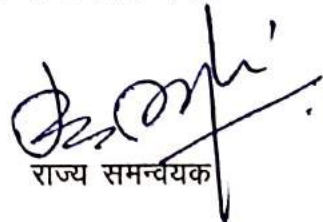 राज्य समन्वयक